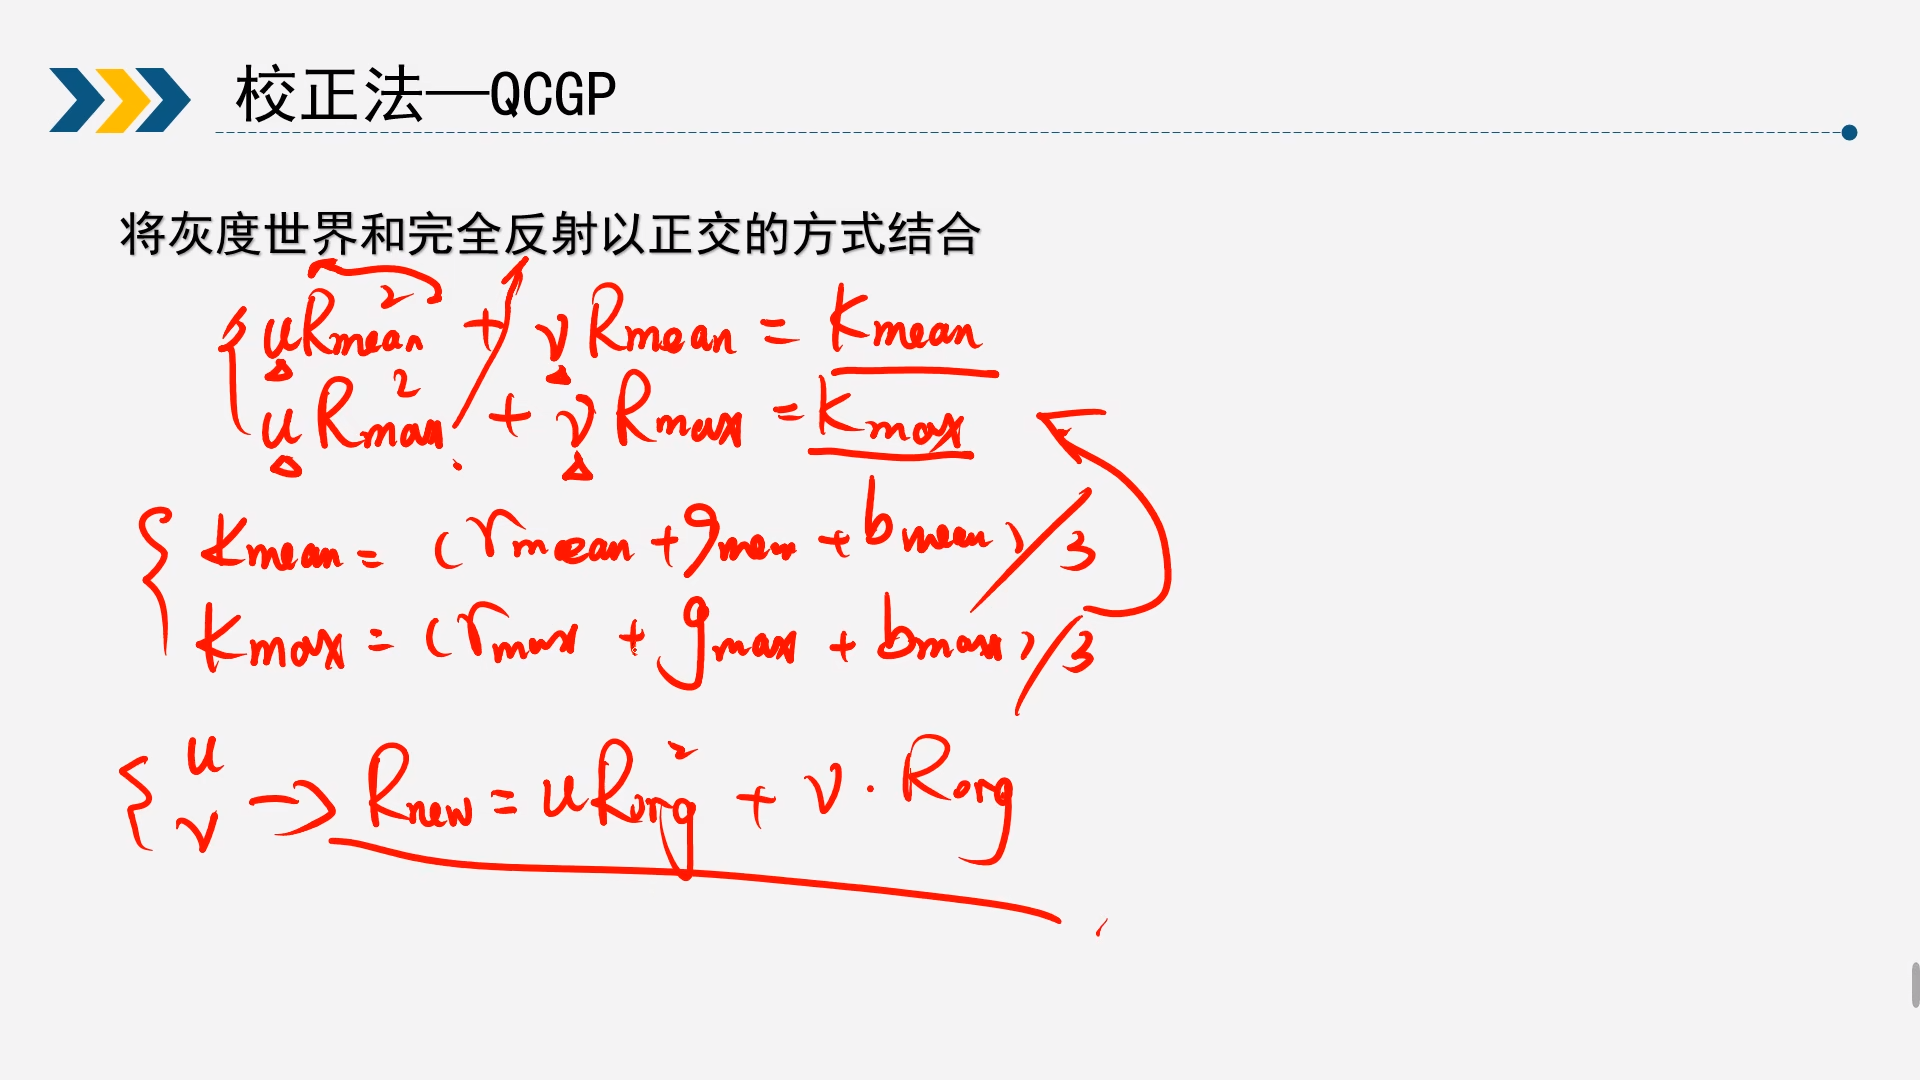 校正法—QCGP
将灰度世界和完全反射以正交的方式结合
uRmean² + vRmean = Kmean
uRmax² + vRmax = Kmax
Kmean = (rmean + gmean + bmean)/3
Kmax = (rmax + gmax + bmax)/3
u
v → Rnew = uRorg² + v · Rorg